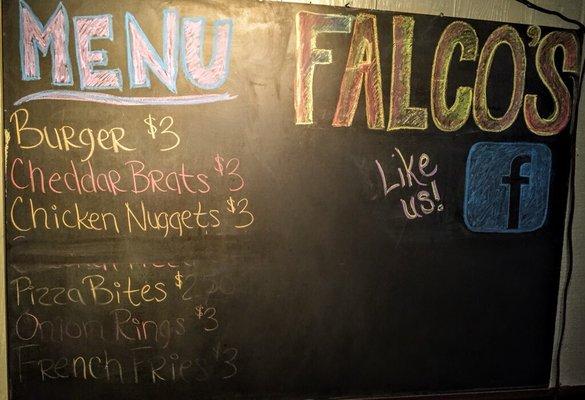 MENU
FALCO'S
Burger $3
Cheddar Brats $3
Chicken Nuggets $3
Pizza Bites $2.50
Onion Rings $3
French Fries $3
Like
us!
f